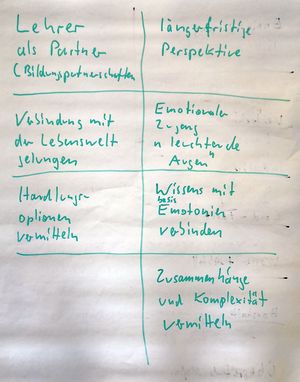 Lehrer
als Partner
(Bildungspartnerschaften
längerfristige
Perspektive
Verbindung mit
der Lebenswelt
gelungen
Emotionaler
Zugang
"leuchtende
Augen"
Handlungs-
optionen
vermitteln
Wissens mit
basis
Emotionen
verbinden
Zusammenhänge
und Komplexität
vermitteln